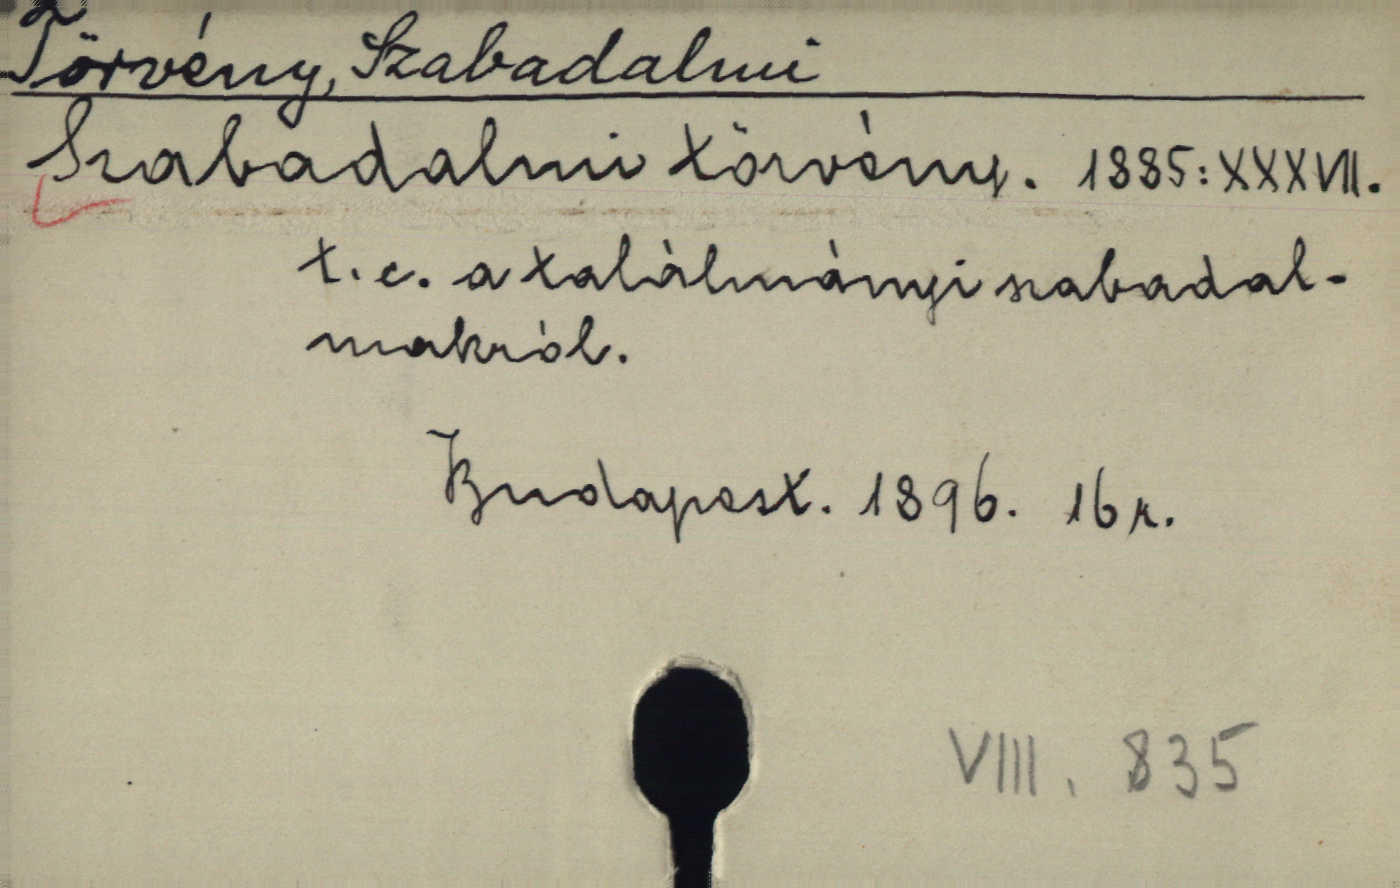 Törvény, Szabadalmi
Szabadalmi törvény. 1885: XXXVII.
t. c. a találmányi szabadal-
makról.
Budapest. 1896. 16 r.
VIII. 835